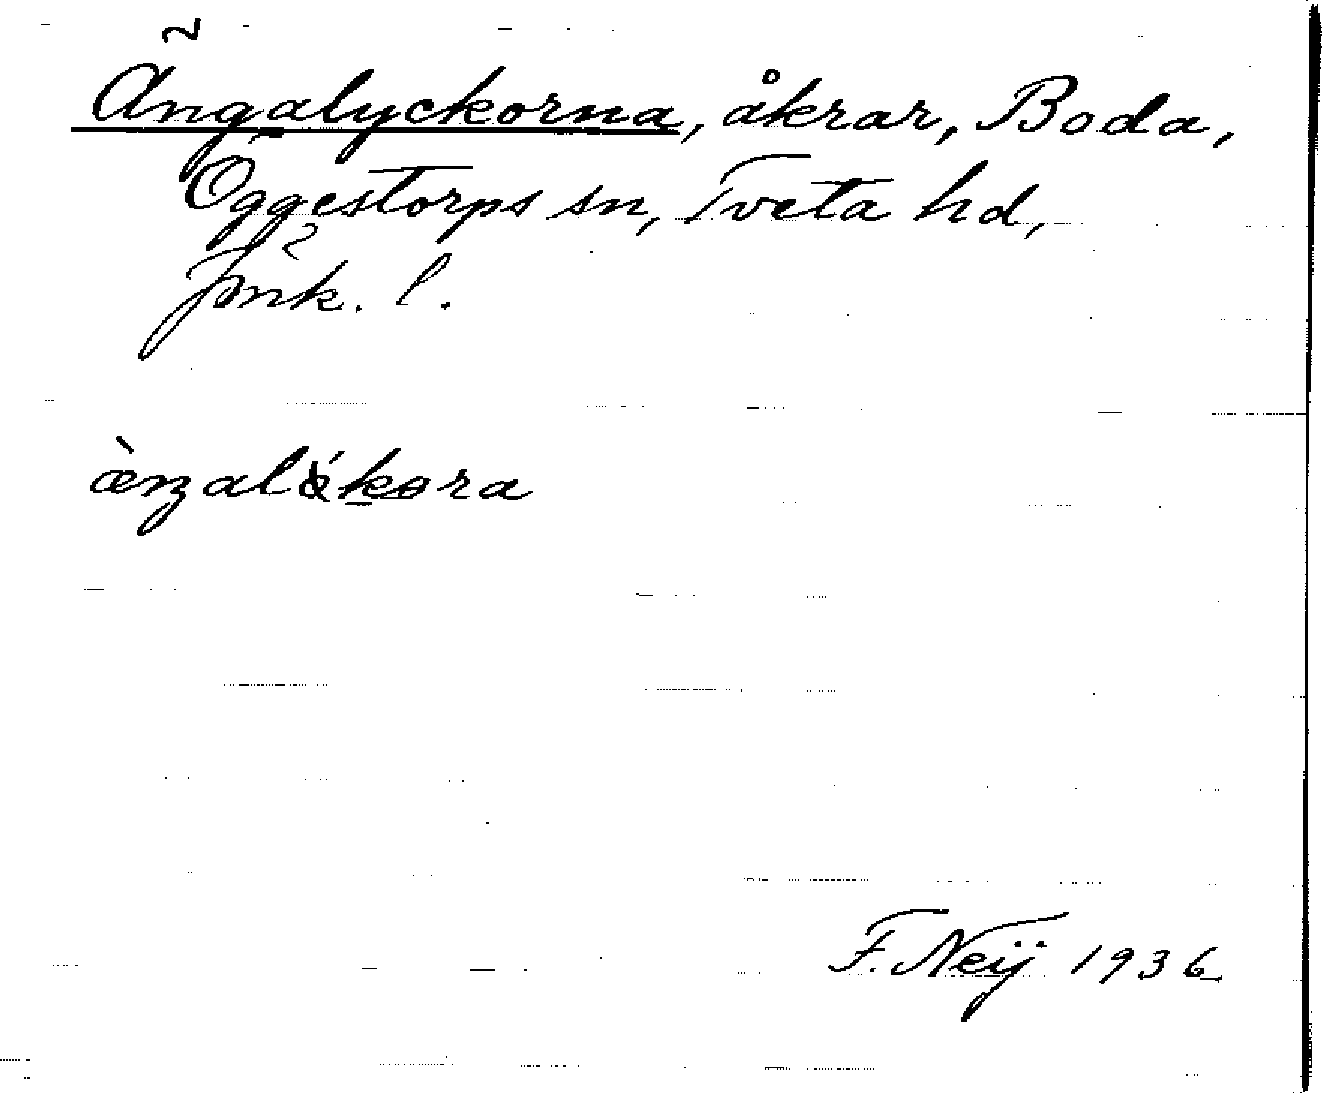 Ängalyckorna, åkrar, Boda,
Öggestorps sn, Tveta hd,
Jönk. l.
æ̀ŋalǿkora
F. Neij 1936